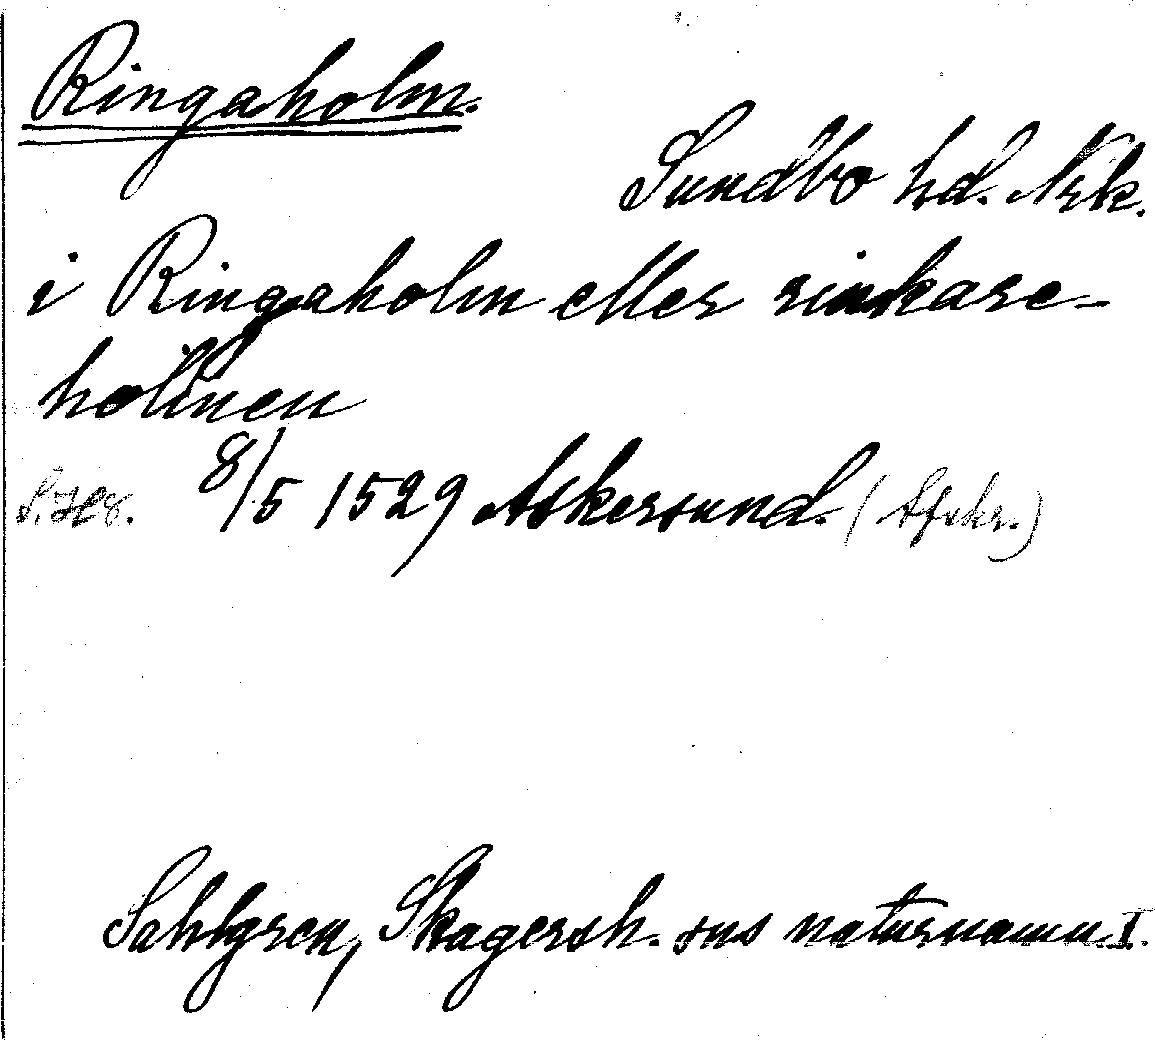 Ringaholm.
Sundbo hd. Nrk.
i Ringaholm eller rinkare-
holmen
8/5 1529 Askersund. (Afskr.)
Sahlgren, Skagersh. sns naturnamn I.